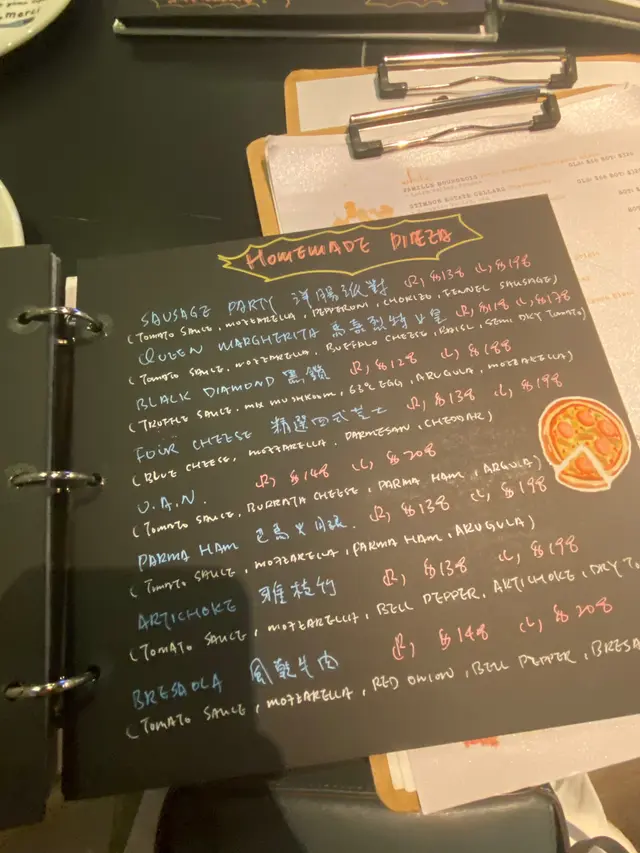 merci
HOMEMADE PIZZA
SAUSAGE PARTY 洋腸派對 R, $138 L, $198
(TOMATO SAUCE, MOZZARELLA, PEPPERONI, CHORIZO, FENNEL SAUSAGE)
QUEEN MARGHERITA 瑪嘉烈特女皇 R, $118 L, $178
(TOMATO SAUCE, MOZZARELLA, BUFFALO CHEESE, BASIL, SEMI DRY TOMATO)
BLACK DIAMOND 黑鑽 R, $128 L, $188
(TRUFFLE SAUCE, MIX MUSHROOM, 63°C EGG, ARUGULA, MOZZARELLA)
FOUR CHEESE 精選四式芝士 R, $138 L, $198
(BLUE CHEESE, MOZZARELLA, PARMESAN, CHEDDAR)
U.A.N. R, $148 L, $208
(TOMATO SAUCE, BURRATA CHEESE, PARMA HAM, ARGULA)
PARMA HAM 巴馬火腿 R, $138 L, $198
(TOMATO SAUCE, MOZZARELLA, PARMA HAM, ARUGULA)
ARTICHOKE 雅枝竹 R, $138 L, $198
(TOMATO SAUCE, MOZZARELLA, BELL PEPPER, ARTICHOKE, DRY TO
BRESAOLA 風乾牛肉 R, $148 L, $208
(TOMATO SAUCE, MOZZARELLA, RED ONION, BELL PEPPER, BRESA